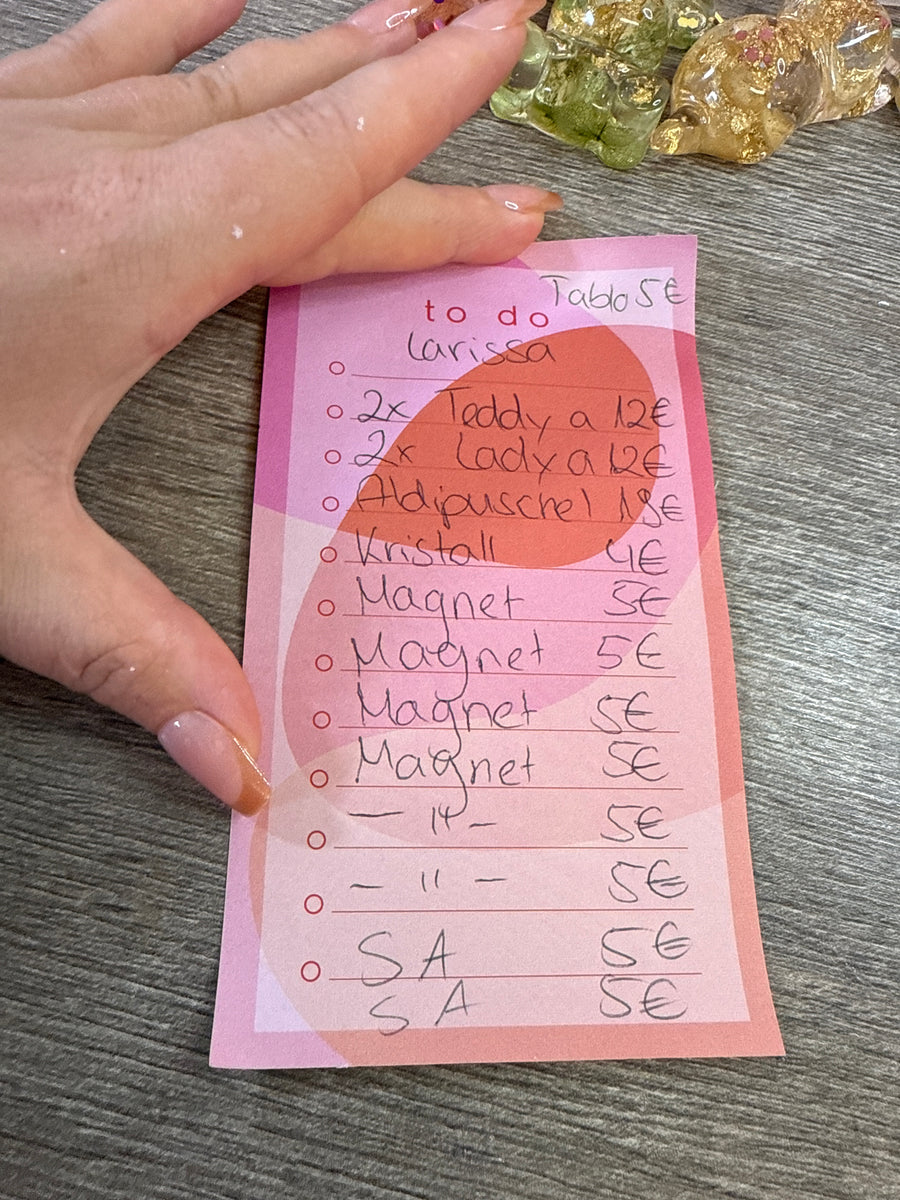 Tablo 5€
to do
Larissa
2x Teddy a 12€
2x Lady a 12€
Aldipuschel
Kristall 4€
Magnet 5€
Magnet 5€
Magnet 5€
Magnet 5€
— 11 — 5€
— 11 — 5€
SA 5€
SA 5€